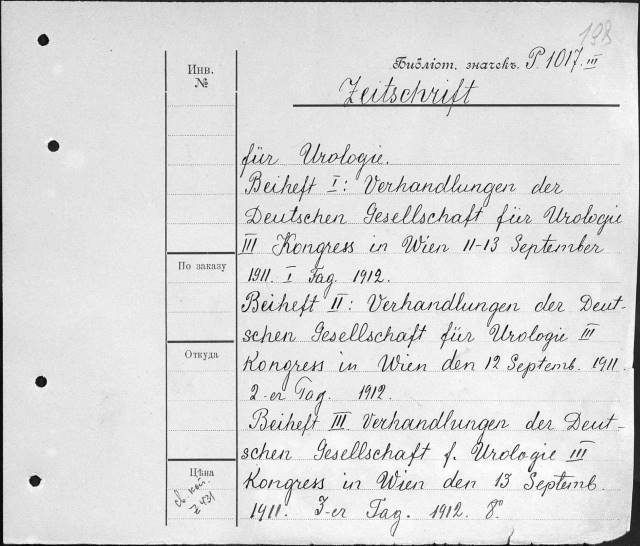 198
Библіот. значекъ. P. 1017. III
Инв.
№
Zeitschrift
für Urologie.
Beiheft I: Verhandlungen der
Deutschen Gesellschaft für Urologie
III Kongress in Wien 11-13 September
1911. I Tag. 1912.
Beiheft II: Verhandlungen der Deut-
schen Gesellschaft für Urologie III
Kongress in Wien den 12 Septemb. 1911.
2-er Tag. 1912.
Beiheft III Verhandlungen der Deut-
schen Gesellschaft f. Urologie III
Kongress in Wien den 13 Septemb.
1911. 3-er Tag. 1912. 8°
По заказу
Откуда
Цѣна
св. кат.
Z 431